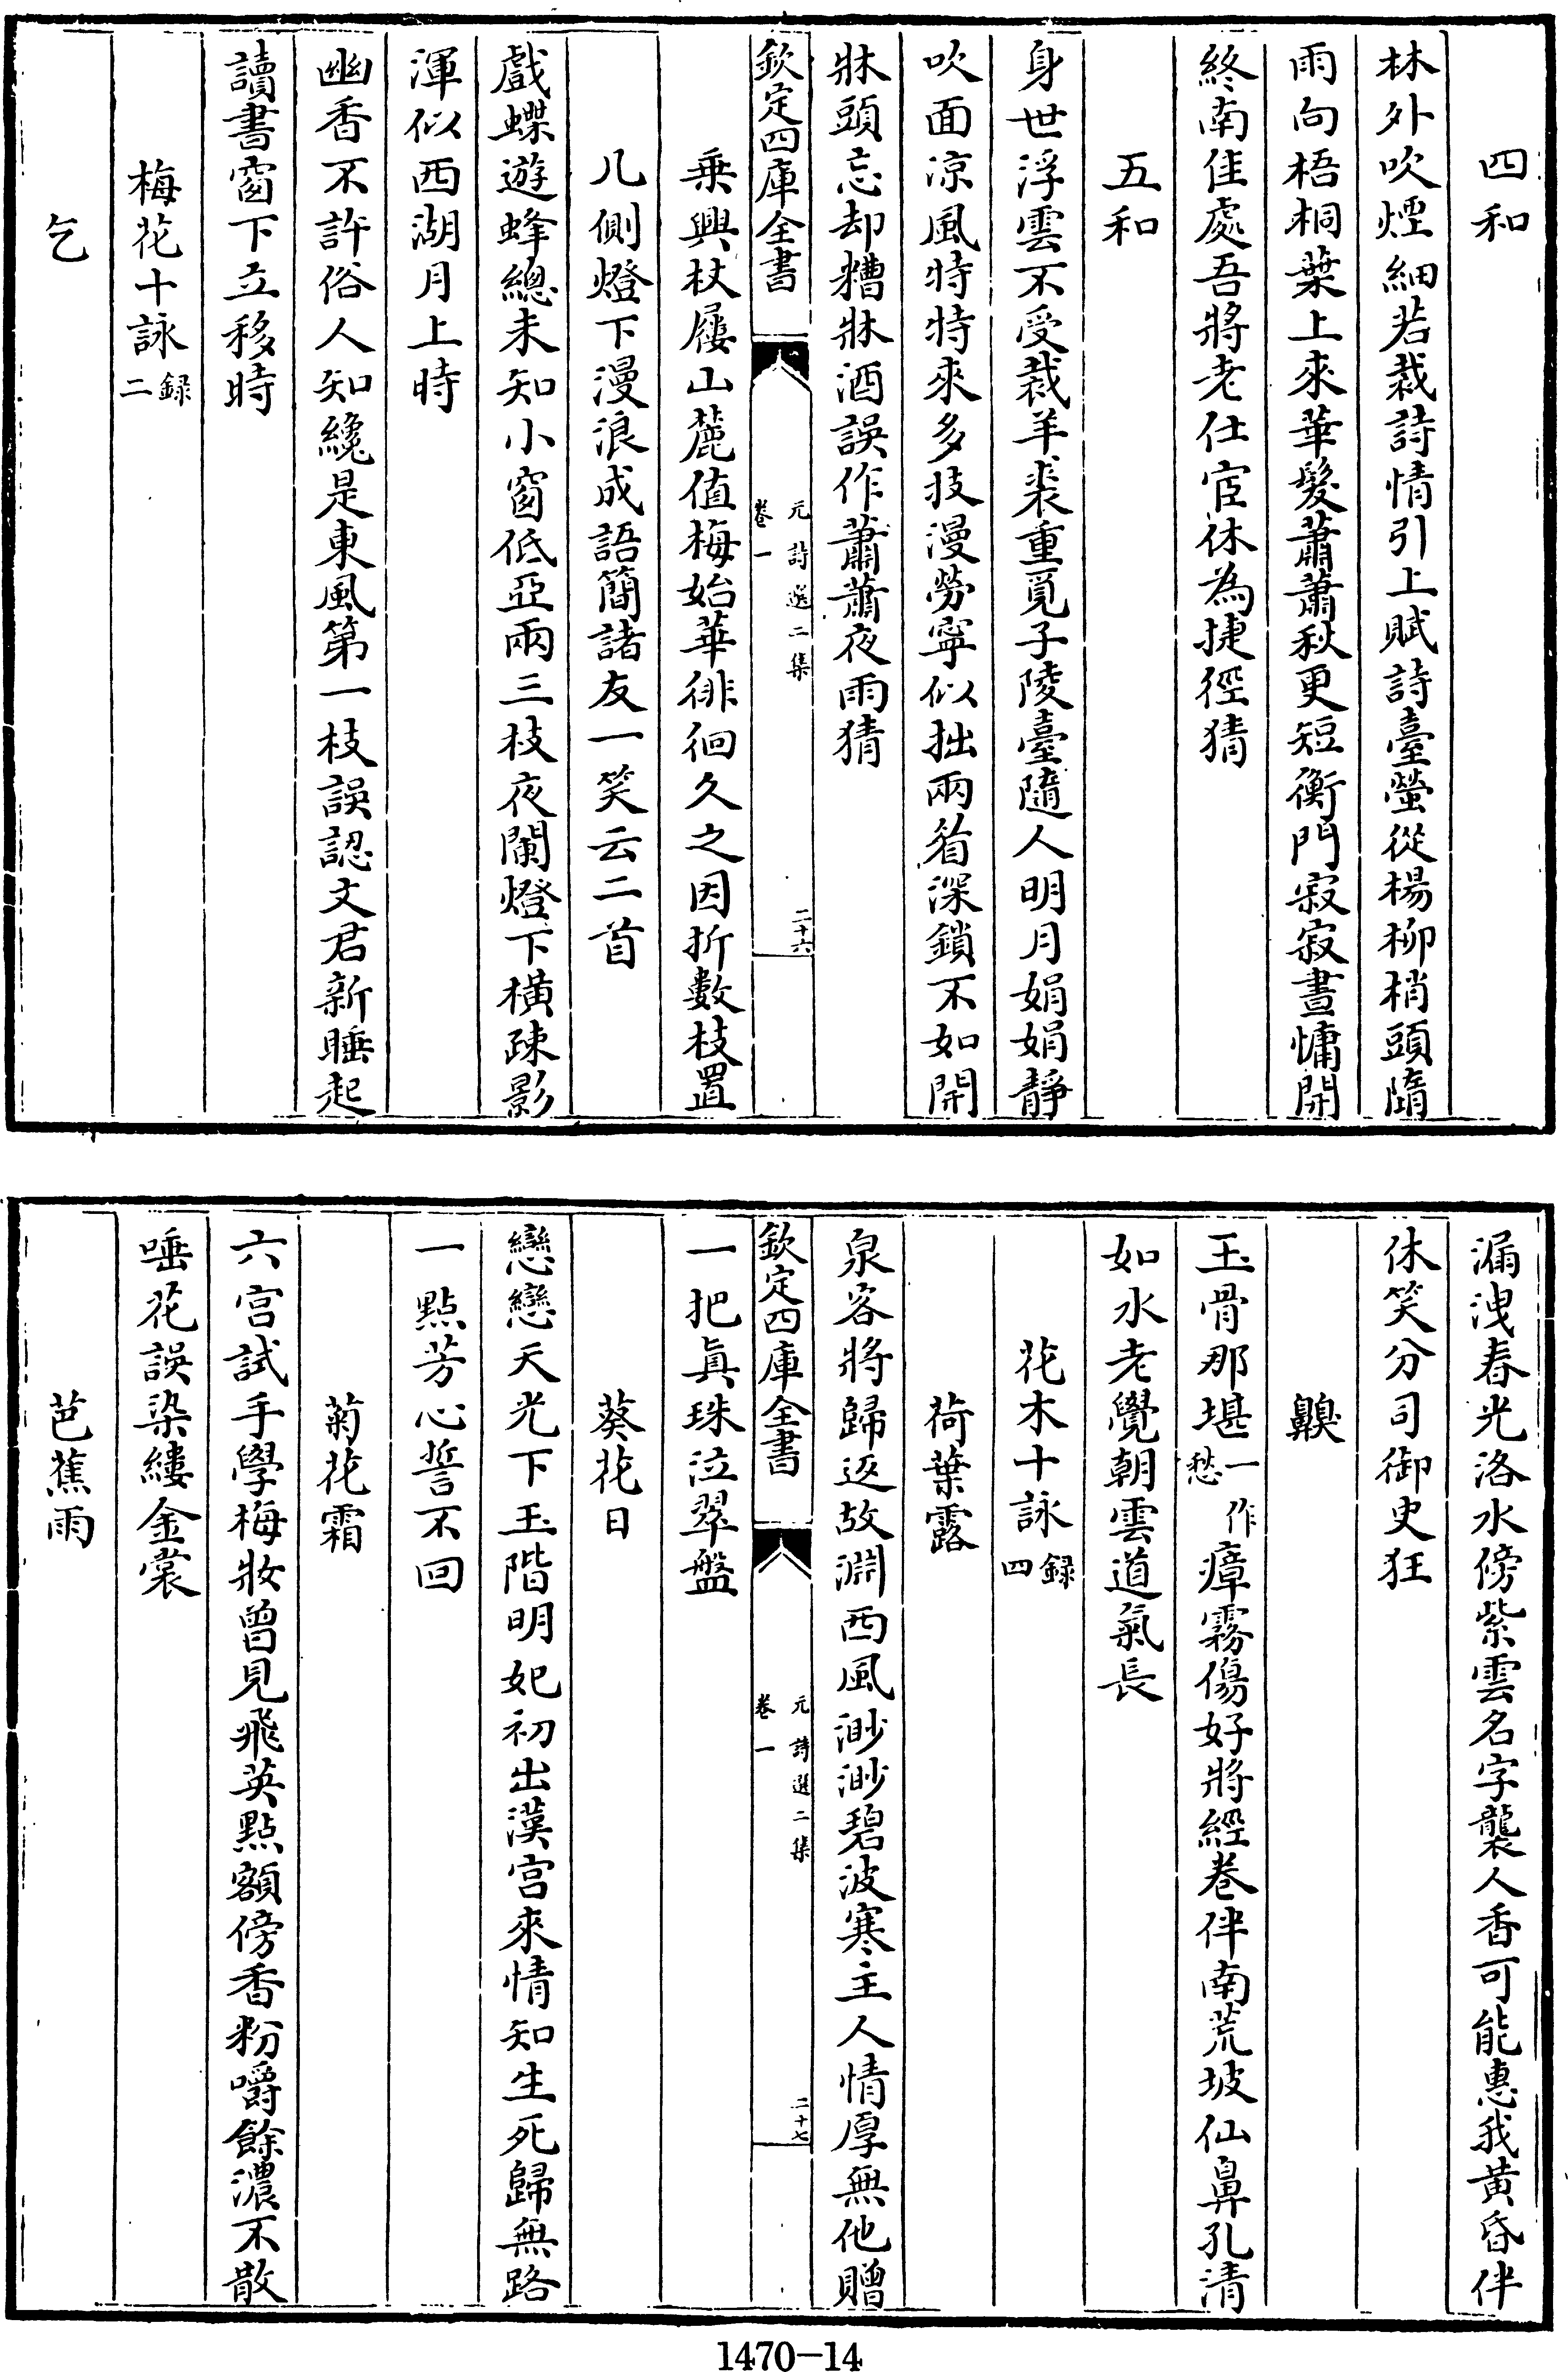 四和
林外吹煙細若裁詩情引上賦詩臺螢從楊柳梢頭隋
雨向梧桐葉上來華髮蕭蕭秋更短衡門寂寂晝慵開
終南佳處吾將老仕宦休為捷徑猜
五和
身世浮雲不受裁羊裘重覓子陵臺隨人明月娟娟靜
吹面涼風特特來多技漫勞寧似拙兩眉深鎖不如開
牀頭忘却糟牀酒誤作蕭蕭夜雨猜
欽定四庫全書
元詩選二集
卷一
二十六
乗興杖屨山麓值梅始華徘徊久之因折數枝置
几側燈下漫浪成語簡諸友一笑云二首
戲蝶遊蜂總未知小窗低亞兩三枝夜闌燈下橫疎影
渾似西湖月上時
幽香不許俗人知纔是東風第一枝誤認文君新睡起
讀書窗下立移時
梅花十詠録二
乞
漏洩春光洛水傍紫雲名字襲人香可能惠我黃昏伴
休笑分司御史狂
齅
玉骨那堪一作愁瘴霧傷好將經卷伴南荒坡仙鼻孔清
如水老覺朝雲道氣長
花木十詠録四
荷葉露
泉客將歸返故淵西風渺渺碧波寒主人情厚無他贈
一把真珠泣翠盤
欽定四庫全書
元詩選二集
卷一
二十七
葵花日
戀戀天光下玉階明妃初出漢宮來情知生死歸無路
一點芳心誓不回
菊花霜
六宮試手學梅妝曾見飛英點額傍香粉嚼餘濃不散
唾花誤染縷金裳
芭蕉雨
1470-14